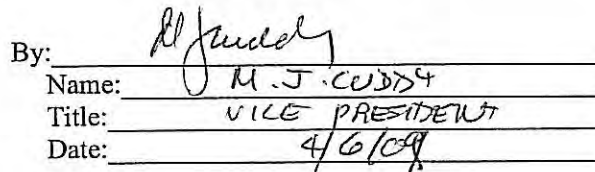 By: MJCuddy
Name: M.J.CUDDY
Title: VICE PRESIDENT
Date: 4/6/09